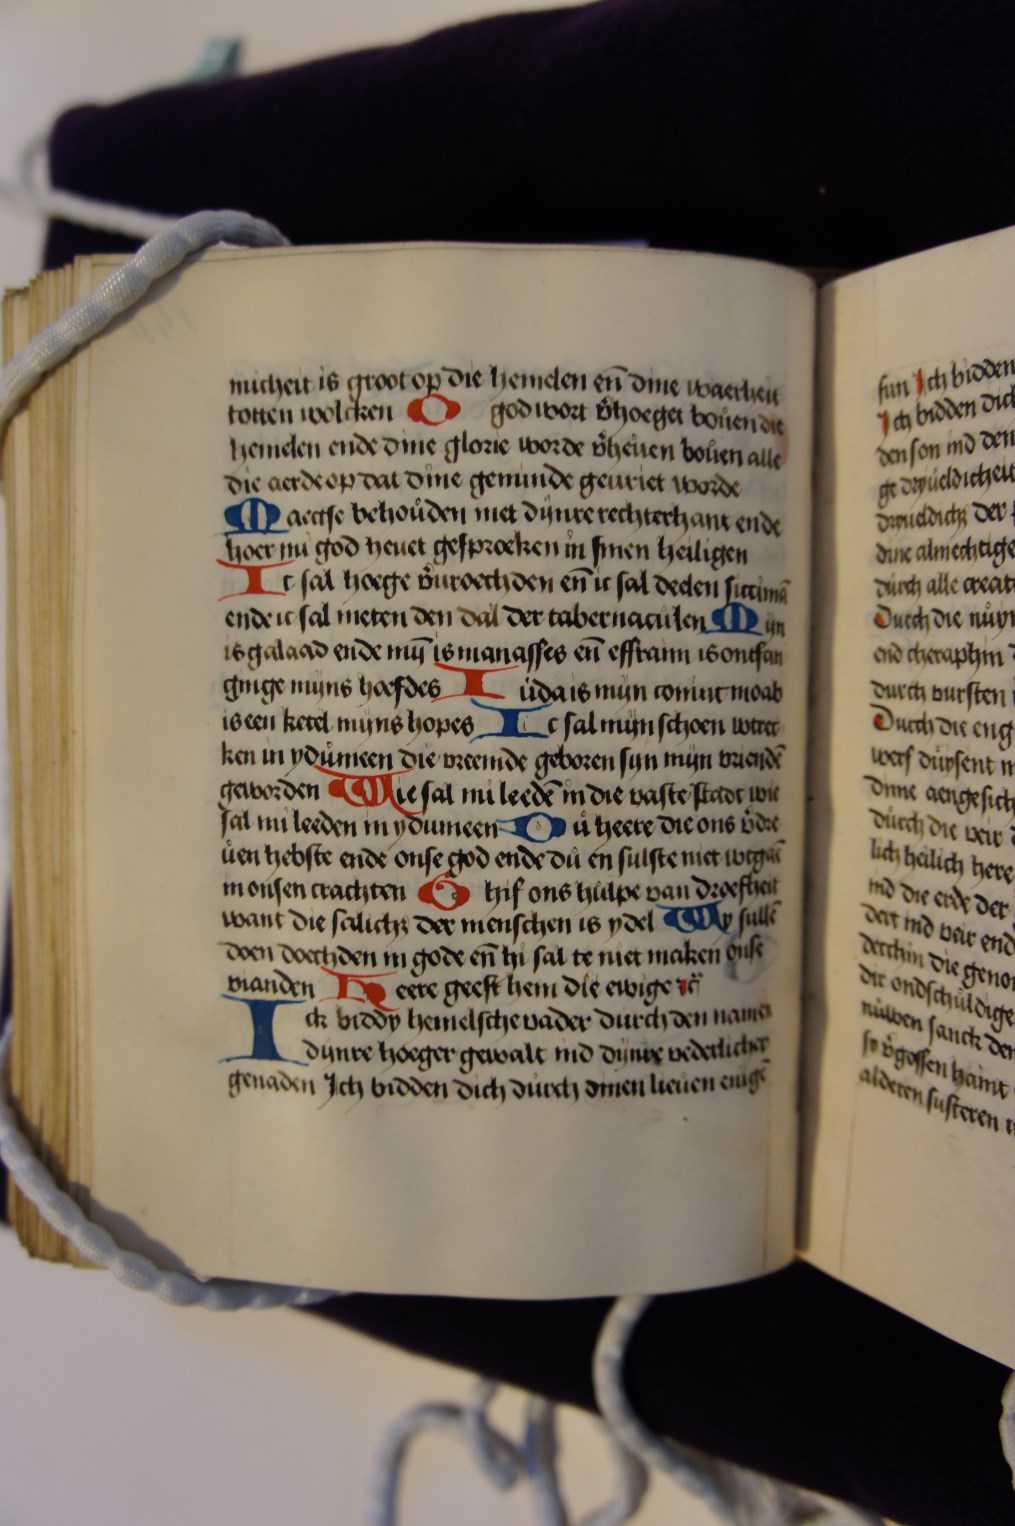 micheit is groot op die hemelen en̄ dine waerheit
totten wolcken O god wort v̄hoeget boůen die
hemelen ende dine glorie worde v̄heůen boůen alle
die aerde op dat dine geminde gevriet worde
Maectse behoůden met dijnre rechterhant ende
hoer mi god heuet gesproeken in sinen heiligen
Ic sal hoege v̄uroechden en̄ ic sal delen siccimā
ende ic sal meten den dal der tabernaculen Mijn
is galaad ende mij̄ is manasses en̄ effraim is ontfan
ginge mijns hoefdes Iůda is mijn coninc moab
is een ketel mijns hopes Ic sal mijn schoen wtrec
ken in ydůmeen die vreemde geboren sijn mijn vriendē
geworden Wie sal mi leedē in die vaste stadt wie
sal mi leeden in ydumeen Dů heere die ons v̄dre
ůen hebste ende onse god ende dů en sulste niet wtgaē
in onsen crachten Ghif ons hulpe van droefheit
want die salichz der menschen is ydel Wy sullē
doen doechden in gode en̄ hi sal te niet maken onse
vianden Heere geeft hem die ewige rē
Ick biddy hemelsche vader durch den namen
dijnre hoeger gewalt ind dijnre vederlicher
genaden Ich bidden dich důrch dinen lieuen enigē
sun Ich bidden
Ich bidden dich
den son ind den
ge drůeldicheit
drůeldichz der
dine almechtige
důrch alle creat
Durch die nůyn
end cheraphin
durch vursten
Durch die eng
werf důysent
dinre aengesich
důrch die veir
lich heilich here
ind die erde der
deir ind veir end
derthin die geno
dir ondschůldige
nůwen sanck den
sy v̄gossen haint
alderen susteren